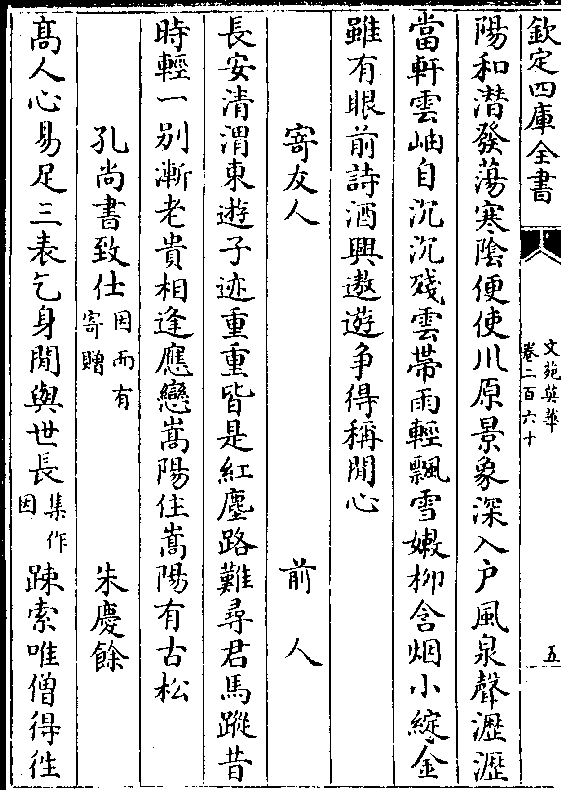 欽定四庫全書
文苑英華
卷二百六十
五
陽和潛發蕩寒陰便使川原景象深入戶風泉聲瀝瀝
當軒雲岫自沉沉殘雲帶雨輕飄雪嫩柳含烟小綻金
雖有眼前詩酒興遨遊爭得稱閒心
寄友人　前人
長安清渭東遊子迹重重皆是紅塵路難尋君馬蹤昔
時輕一别漸老貴相逢應戀嵩陽住嵩陽有古松
孔尚書致仕因而有寄贈　朱慶餘
髙人心易足三表乞身閒與世長集作因踈索唯僧得徃